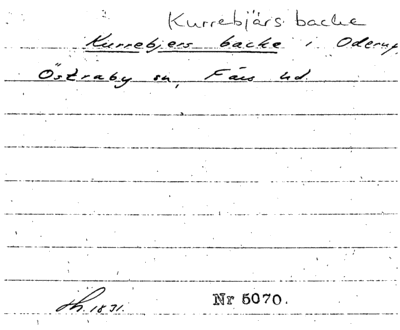 Kurrebjärs backe
Kurrebjers backe i Oderup
Östraby sn, Färs hd
1831. Nr 5070.